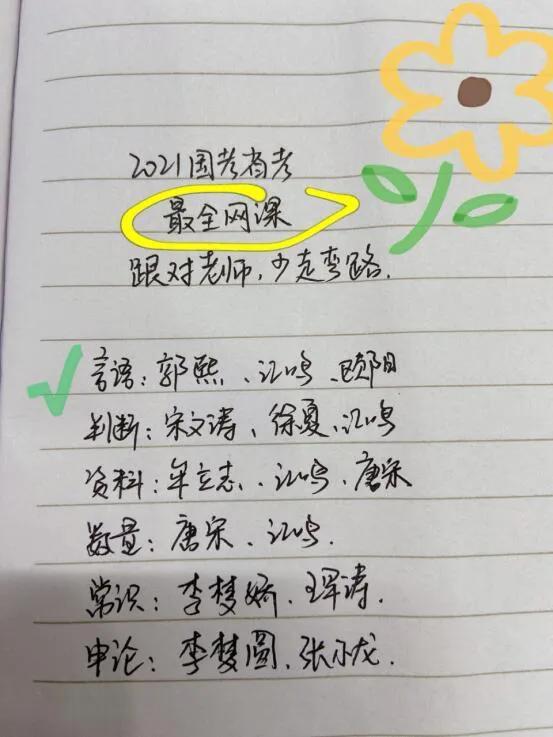 2021国考省考
最全网课
跟对老师,少走弯路.
言语:郭熙、江鸣、欧阳
判断:宋文涛、徐夏、江鸣
资料:牟立志、江鸣、唐宋
数量:唐宋、江鸣.
常识:李梦娇、琤涛.
申论:李梦圆、张小龙.